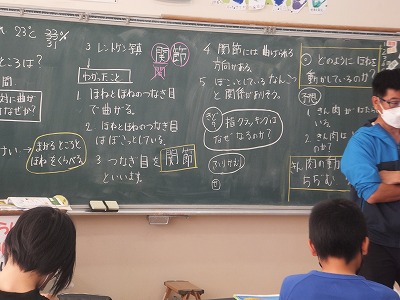 23℃
33%
31
ところは?
間
対に曲が
なぜか?
まがるところと
ほねをくらべる。
3 レントゲン写真
関節
関
わかったこと
1 ほねとほねのつなぎ目
で曲がる。
2 ほねとほねのつなぎ目
はぼこっとしている。
3 つなぎ目を 関節
といいます。
4 関節には曲げられる
方向がある。
5 ぼこっとしているなんこつ
と関節がありそう。
指クラッキングは
なぜなるのか?
ふりかえり
どのようにほねを
動かしているのか?
予想
1 きん肉が
いる。
2 きん肉は
のか?
きん肉の動